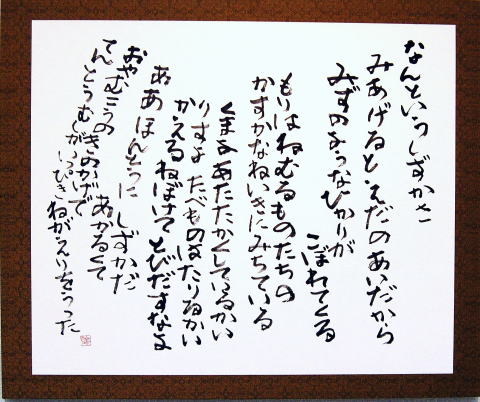 なんというしずかさ
みあげると えだのあいだから
みずのようなひかりが
こぼれてくる
もりはねむるものたちの
かすかなねいきにみちている
くまよ あたたかくしているかい
りすよ たべものはたりるかい
かえるねぼけて とびだすなよ
ああ ほんとうに しずかだ
おや むこうの きのかげで
てんとうむしがいっぴき
あかるくて
ねがえりをうった